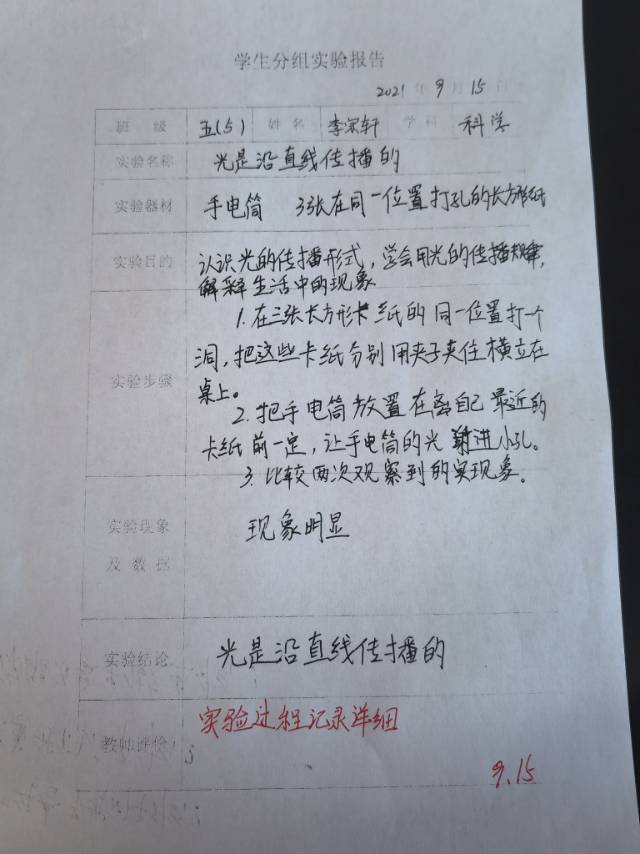 学生分组实验报告
2021年9月15日
班 级 五(5) 姓名 李宗轩 学科 科学
实验名称 光是沿直线传播的
实验器材 手电筒 3张在同一位置打孔的长方形纸
实验目的 认识光的传播形式,学会用光的传播规律,
解释生活中的现象
1.在三张长方形卡纸的同一位置打一个
洞,把这些卡纸分别用夹子夹住横立在
实验步骤 桌上。
2.把手电筒放置在离自己最近的
卡纸前一定,让手电筒的光射进小孔。
3.比较两次观察到的实现象。
实验现象 现象明显
及数据
实验结论 光是沿直线传播的
实验过程记录详细
教师评价
9.15